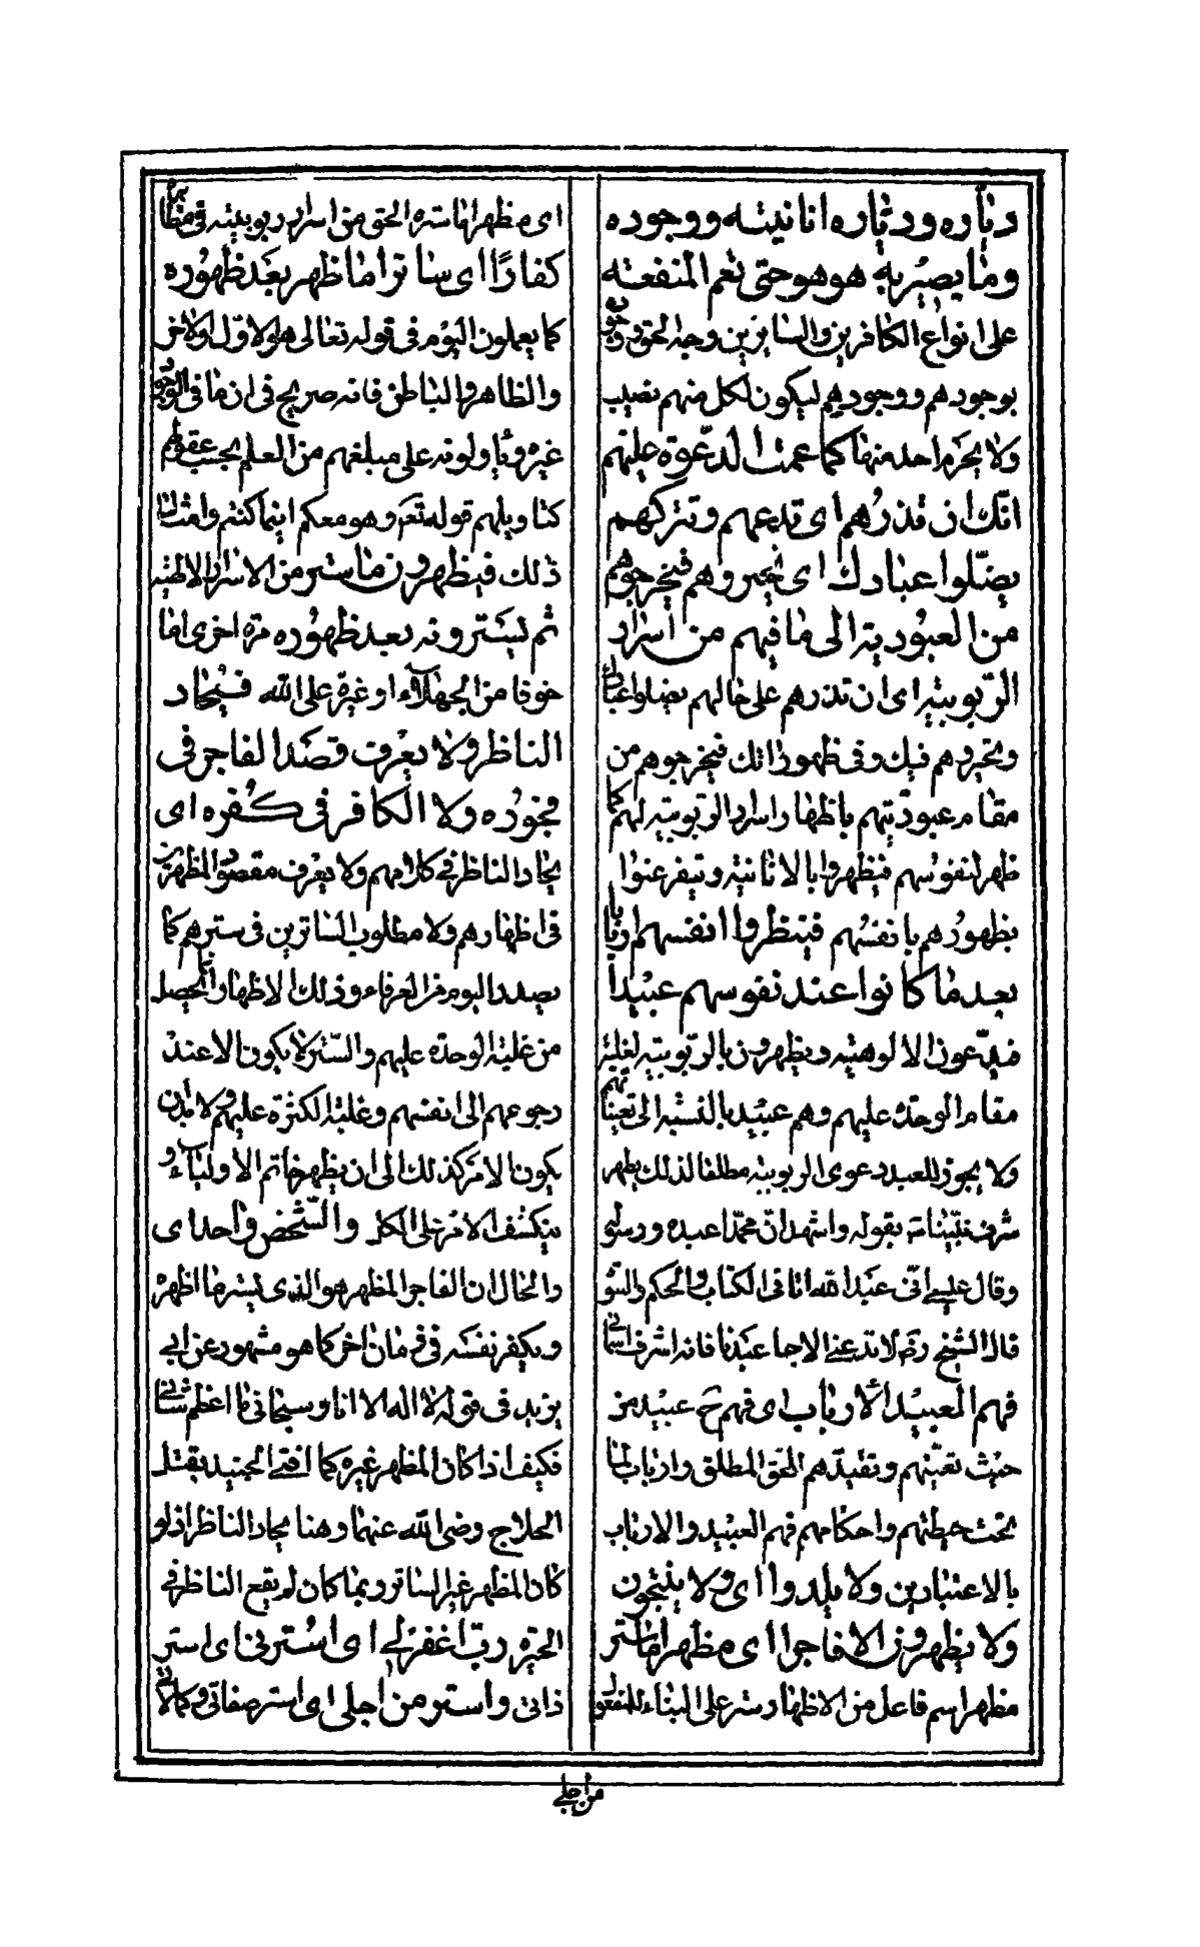 دياره ودثاره انانيته ووجوده
وما يصير به هو هو حتى تعم المنفعة
على انواع الكافرين والساترين وجه الحق ووجوده
بوجودهم ووجودهم ليكون لكل منهم نصيب
ولا يحرم احد منها كما عمت الدعوة عليهم
انك ان تذرهم اى تدعهم وتتركهم
يضلوا عبادك اى يحيروهم فيخرجوهم
من العبودية الى ما فيهم من اسرار
الربوبية اى ان تذرهم على حالهم يضلوا عبادك
ويحيروهم فيك وفى ظهوراتك فيخرجوهم من
مقام عبوديتهم باظهار اسرار الربوبية لهم كما
ظهر لنفوسهم فيظهروا بالانانية ويتفرعنوا
بظهورهم بانفسهم فينظروا انفسهم اربابا
بعد ما كانوا عند نفوسهم عبيدا
فيدعون الالوهية ويظهرون بالربوبية لغلبة
مقام الوحدة عليهم وهم عبيد بالنسبة الى تعيناتهم
ولا يجوز للعبد دعوى الربوبية مطلقا لذلك يظهر
شرف نبينا صـ بقوله واشهد ان محمدا عبده ورسوله
وقال عيسى انى عبد الله اتانى الكتاب والحكم والنبوة
قال الشيخ رضـ لا تدعنى الا بيا عبدها فانه اشرف اسمائى
فهم العبيد الارباب اى فهم ح عبيد من
حيث تعينهم وتقيدهم الحق المطلق وارباب لما
تحت حيطتهم واحكامهم فهم العبيد والارباب
بالاعتبارين ولا يلدوا اى ولا ينتجون
ولا يظهرون الا فاجرا اى مظهرا ما ستر
مظهر اسم فاعل من الاظهار وستر على البناء للمفعول
اى مظهرا ما ستره الحق من اسرار ربوبيته فى مظاهرهم
كفارا اى ساترا ما ظهر بعد ظهوره
كما يعملون اليوم فى قوله تعالى هو الاول والاخر
والظاهر والباطن فانه صريح فى ان ما فى الوجود
غيره ويأولونه على مبلغهم من العلم بحسب عقولهم
كتاويلهم قوله تعـ وهو معكم اينما كنتم وامثال
ذلك فيظهرون ما ستر من الاسرار الالهية
ثم يسترونه بعد ظهوره مرة اخرى اما
خوفا من الجهلاء او غيرة على الله فيحار
الناظر ولا يعرف قصد الفاجر فى
فجوره ولا الكافر فى كفره اى
يحار الناظر فى كلامهم ولا يعرف مقصود المظهرين
فى اظهارهم ولا مطلوب الساترين فى سترهم كما
يصدر اليوم من العرفاء وذلك الاظهار انما يحصل
من غلبة الوحدة عليهم والستر لا يكون الا عند
رجوعهم الى انفسهم وغلبة الكثرة عليهم ولا بد ان
يكون الامر كذلك الى ان يظهر خاتم الاولياء و
ينكشف الامر على الكل والشخص واحد اى
والحال ان الفاجر المظهر هو الذى يستر ما اظهره
ويكفر نفسه فى زمان اخر كما هو مشهور عن ابى
يزيد فى قوله لا اله الا انا وسبحانى ما اعظم شانى
فكيف اذا كان المظهر غيره كما افتى الجنيد بقتل
الحلاج رضى الله عنهما وهنا يحار الناظر اذ لو
كان المظهر غير الساتر ربما كان لم يقع الناظر فى
الحيرة رب اغفر لى اى استرنى اى استر
ذاتى واستر من اجلى اى استر صفاتى وكمالاتى
من اجلى